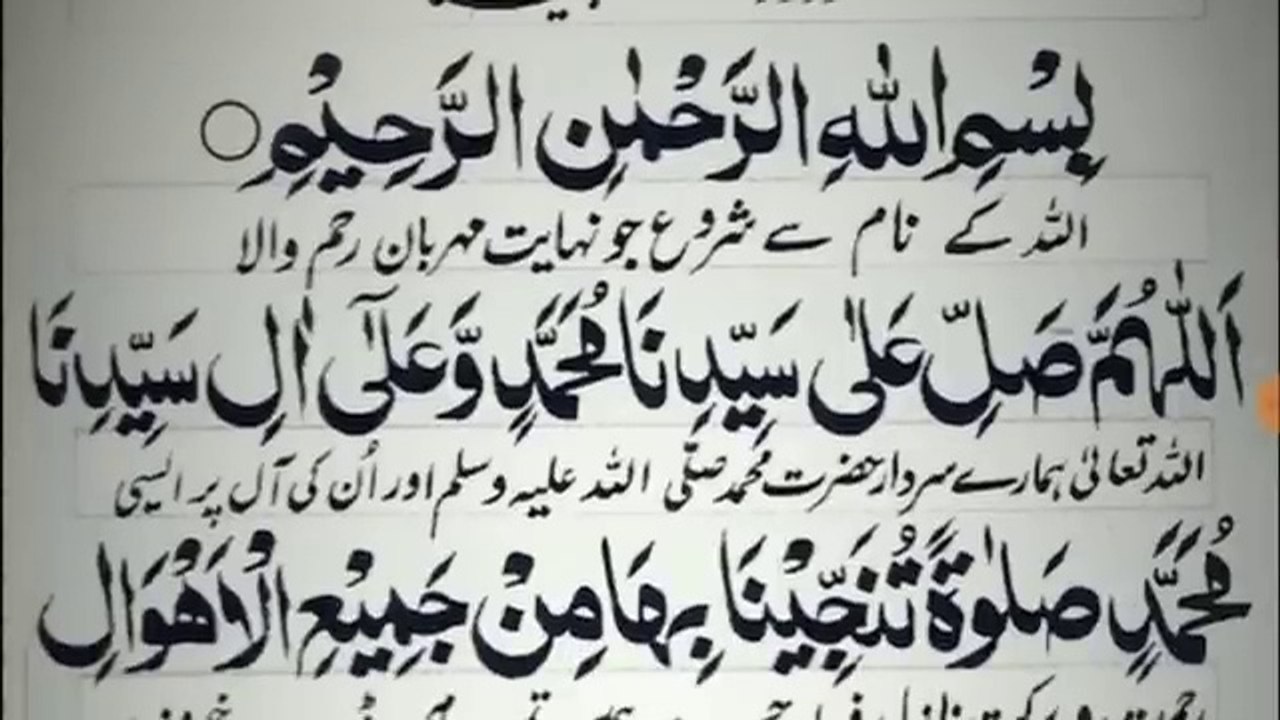 بِسْمِ اللّٰهِ الرَّحْمٰنِ الرَّحِيْمِ ○
اللہ کے نام سے شروع جو نہایت مہربان رحم والا
اَللّٰهُمَّ صَلِّ عَلٰى سَيِّدِنَا مُحَمَّدٍ وَّعَلٰٓى اٰلِ سَيِّدِنَا
اللہ تعالیٰ ہمارے سردار حضرت محمد صلّی اللہ علیہ وسلم اور اُن کی آل پر ایسی
مُحَمَّدٍ صَلٰوةً تُنَجِّيْنَا بِهَا مِنْ جَمِيْعِ الْاَهْوَالِ